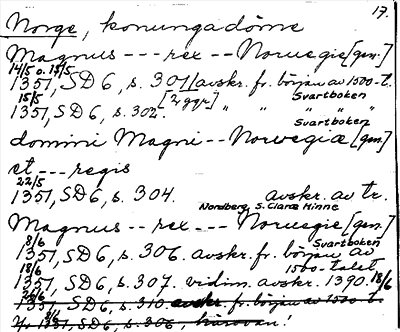 17.
Norge, konungadöme
Magnus --- rex -- Noruegie [gen.]
14/5 o. 15/5
1351, SD 6, s. 301 [avskr. fr. början av 1500-t.
15/5 [2 ggr] Svartboken
1351, SD 6, s. 302. " " " "
Svartboken
domini Magni -- Norwegiæ [gen]
et --- regis
22/5
1351, SD 6, s. 304. avskr. av tr.
Nordberg, S. Claræ Minne
Magnus -- rex --- Noruegie [gen.]
8/6 Svartboken
1351, SD 6, s. 306. avskr. fr. början av
18/6 1500-talet
1351, SD 6, s. 307. vidim. avskr. 1390. 18/6
1351, SD 6, s. 310 avskr. fr. början av 1500-t
1351, SD 6, s. 306, härovan!